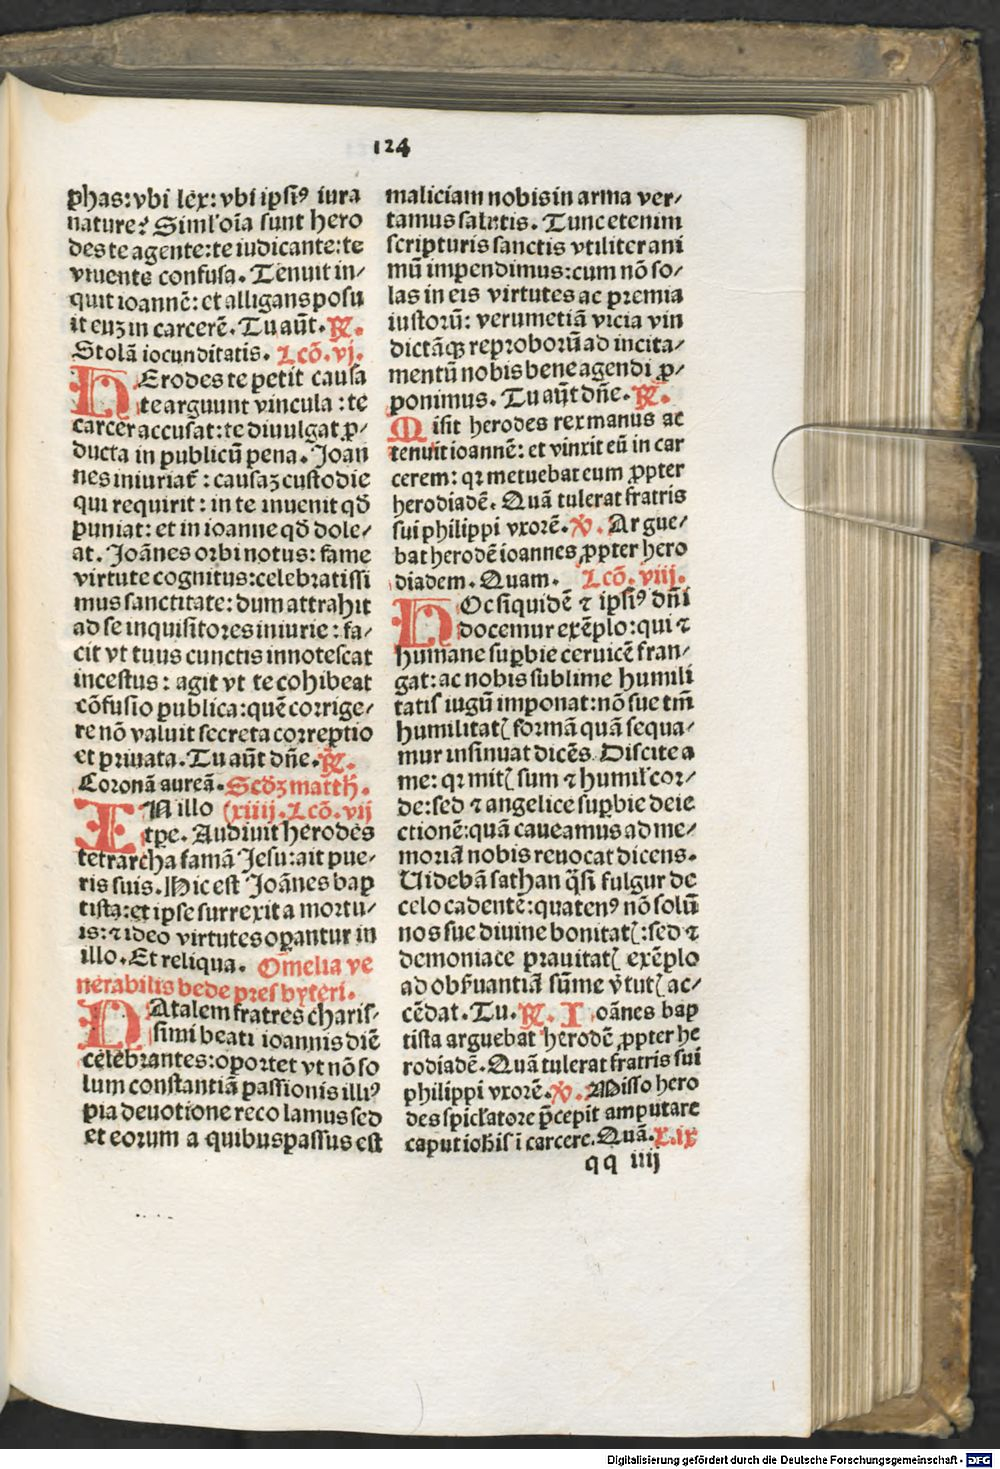 124
phas: vbi lex: vbi ipsiꝰ iura
nature? Siml'oīa sunt hero
des te agente: te iudicante: te
viuente confusa. Tenuit in⸗
quit ioannē: et alligans posu
it euꝫ in carcerē. Tu aūt. ℞.
Stolā iocunditatis. Lcō. vj.
HErodes te petit causa
te arguunt vincula: te
carcer accusat: te diuulgat ꝓ⸗
ducta in publicū pena. Ioan
nes iniuriat̄: causaꝫ custodie
qui requirit: in te inuenit qđ
puniat: et in ioanne qđ dole⸗
at. Ioānes orbi notus: fame
virtute cognitus: celebratissi
mus sanctitate: dum attrahit
ad se inquisitores iniurie: fa⸗
cit vt tuus cunctis innotescat
incestus: agit vt te cohibeat
cōfusio publica: quē corrige⸗
re nō valuit secreta correptio
et priuata. Tu aūt dn̄e. ℞.
Coronā aureā. Scđꝫ matth.
IN illo (xiiij. Lcō. vij
tpe. Audiuit herodes
tetrarcha famā Jesu: ait pue⸗
ris suis. Hic est Joānes bap
tista: et ipse surrexit a mortu⸗
is: ⁊ ideo virtutes oꝑantur in
illo. Et reliqua. Omelia ve
nerabilis bede presbyteri.
NAtalem fratres charis⸗
simi beati ioannis diē
celebrantes: oportet vt nō so
lum constantiā passionis illiꝰ
pia deuotione recolamus sed
et eorum a quibus passus est
maliciam nobis in arma ver⸗
tamus salutis. Tunc etenim
scripturis sanctis vtiliter ani
mū impendimus: cum nō so⸗
las in eis virtutes ac premia
iustorū: verumetiā vicia vin
dictāqꝫ reproborū ad incita⸗
mentū nobis bene agendi ꝓ⸗
ponimus. Tu aūt dn̄e. ℞.
Misit herodes rex manus ac
tenuit ioannē: et vinxit eū in car
cerem: qꝛ metuebat eum ꝓpter
herodiadē. Quā tulerat fratris
sui philippi vxorē. ℣. Argue⸗
bat herodē ioannes ꝓpter hero
diadem. Quam. Lcō. viij.
HOc siquidē ⁊ ipsiꝰ dn̄i
docemur exēplo: qui ⁊
humane suꝑbie ceruicē fran⸗
gat: ac nobis sublime humili
tatis iugū imponat: nō sue tm̄
humilitatꝭ formā quā sequa⸗
mur insinuat dicēs. Discite a
me: qꝛ mitꝭ sum ⁊ humil' cor⸗
de: sed ⁊ angelice suꝑbie deie
ctionē: quā caueamus ad me⸗
moriā nobis reuocat dicens.
Uidebā sathan q̄si fulgur de
celo cadentē: quatenꝰ nō solū
nos sue diuine bonitatꝭ: sed ⁊
demoniace prauitatꝭ exēplo
ad obẜuantiā sūme v̄tutꝭ ac⸗
cēdat. Tu. ℞. Ioānes bap
tista arguebat herodē ꝓpter he
rodiadē. Quā tulerat fratris sui
philippi vxorē. ℣. Misso hero
des spicl'atore p̄cepit amputare
caput ioħis i carcere. Quā. L. ix
qq iiij
Digitalisierung gefördert durch die Deutsche Forschungsgemeinschaft - DFG